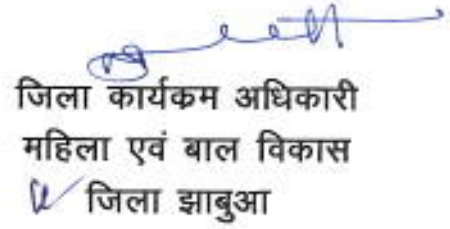 जिला कार्यकम अधिकारी
महिला एवं बाल विकास
जिला झाबुआ